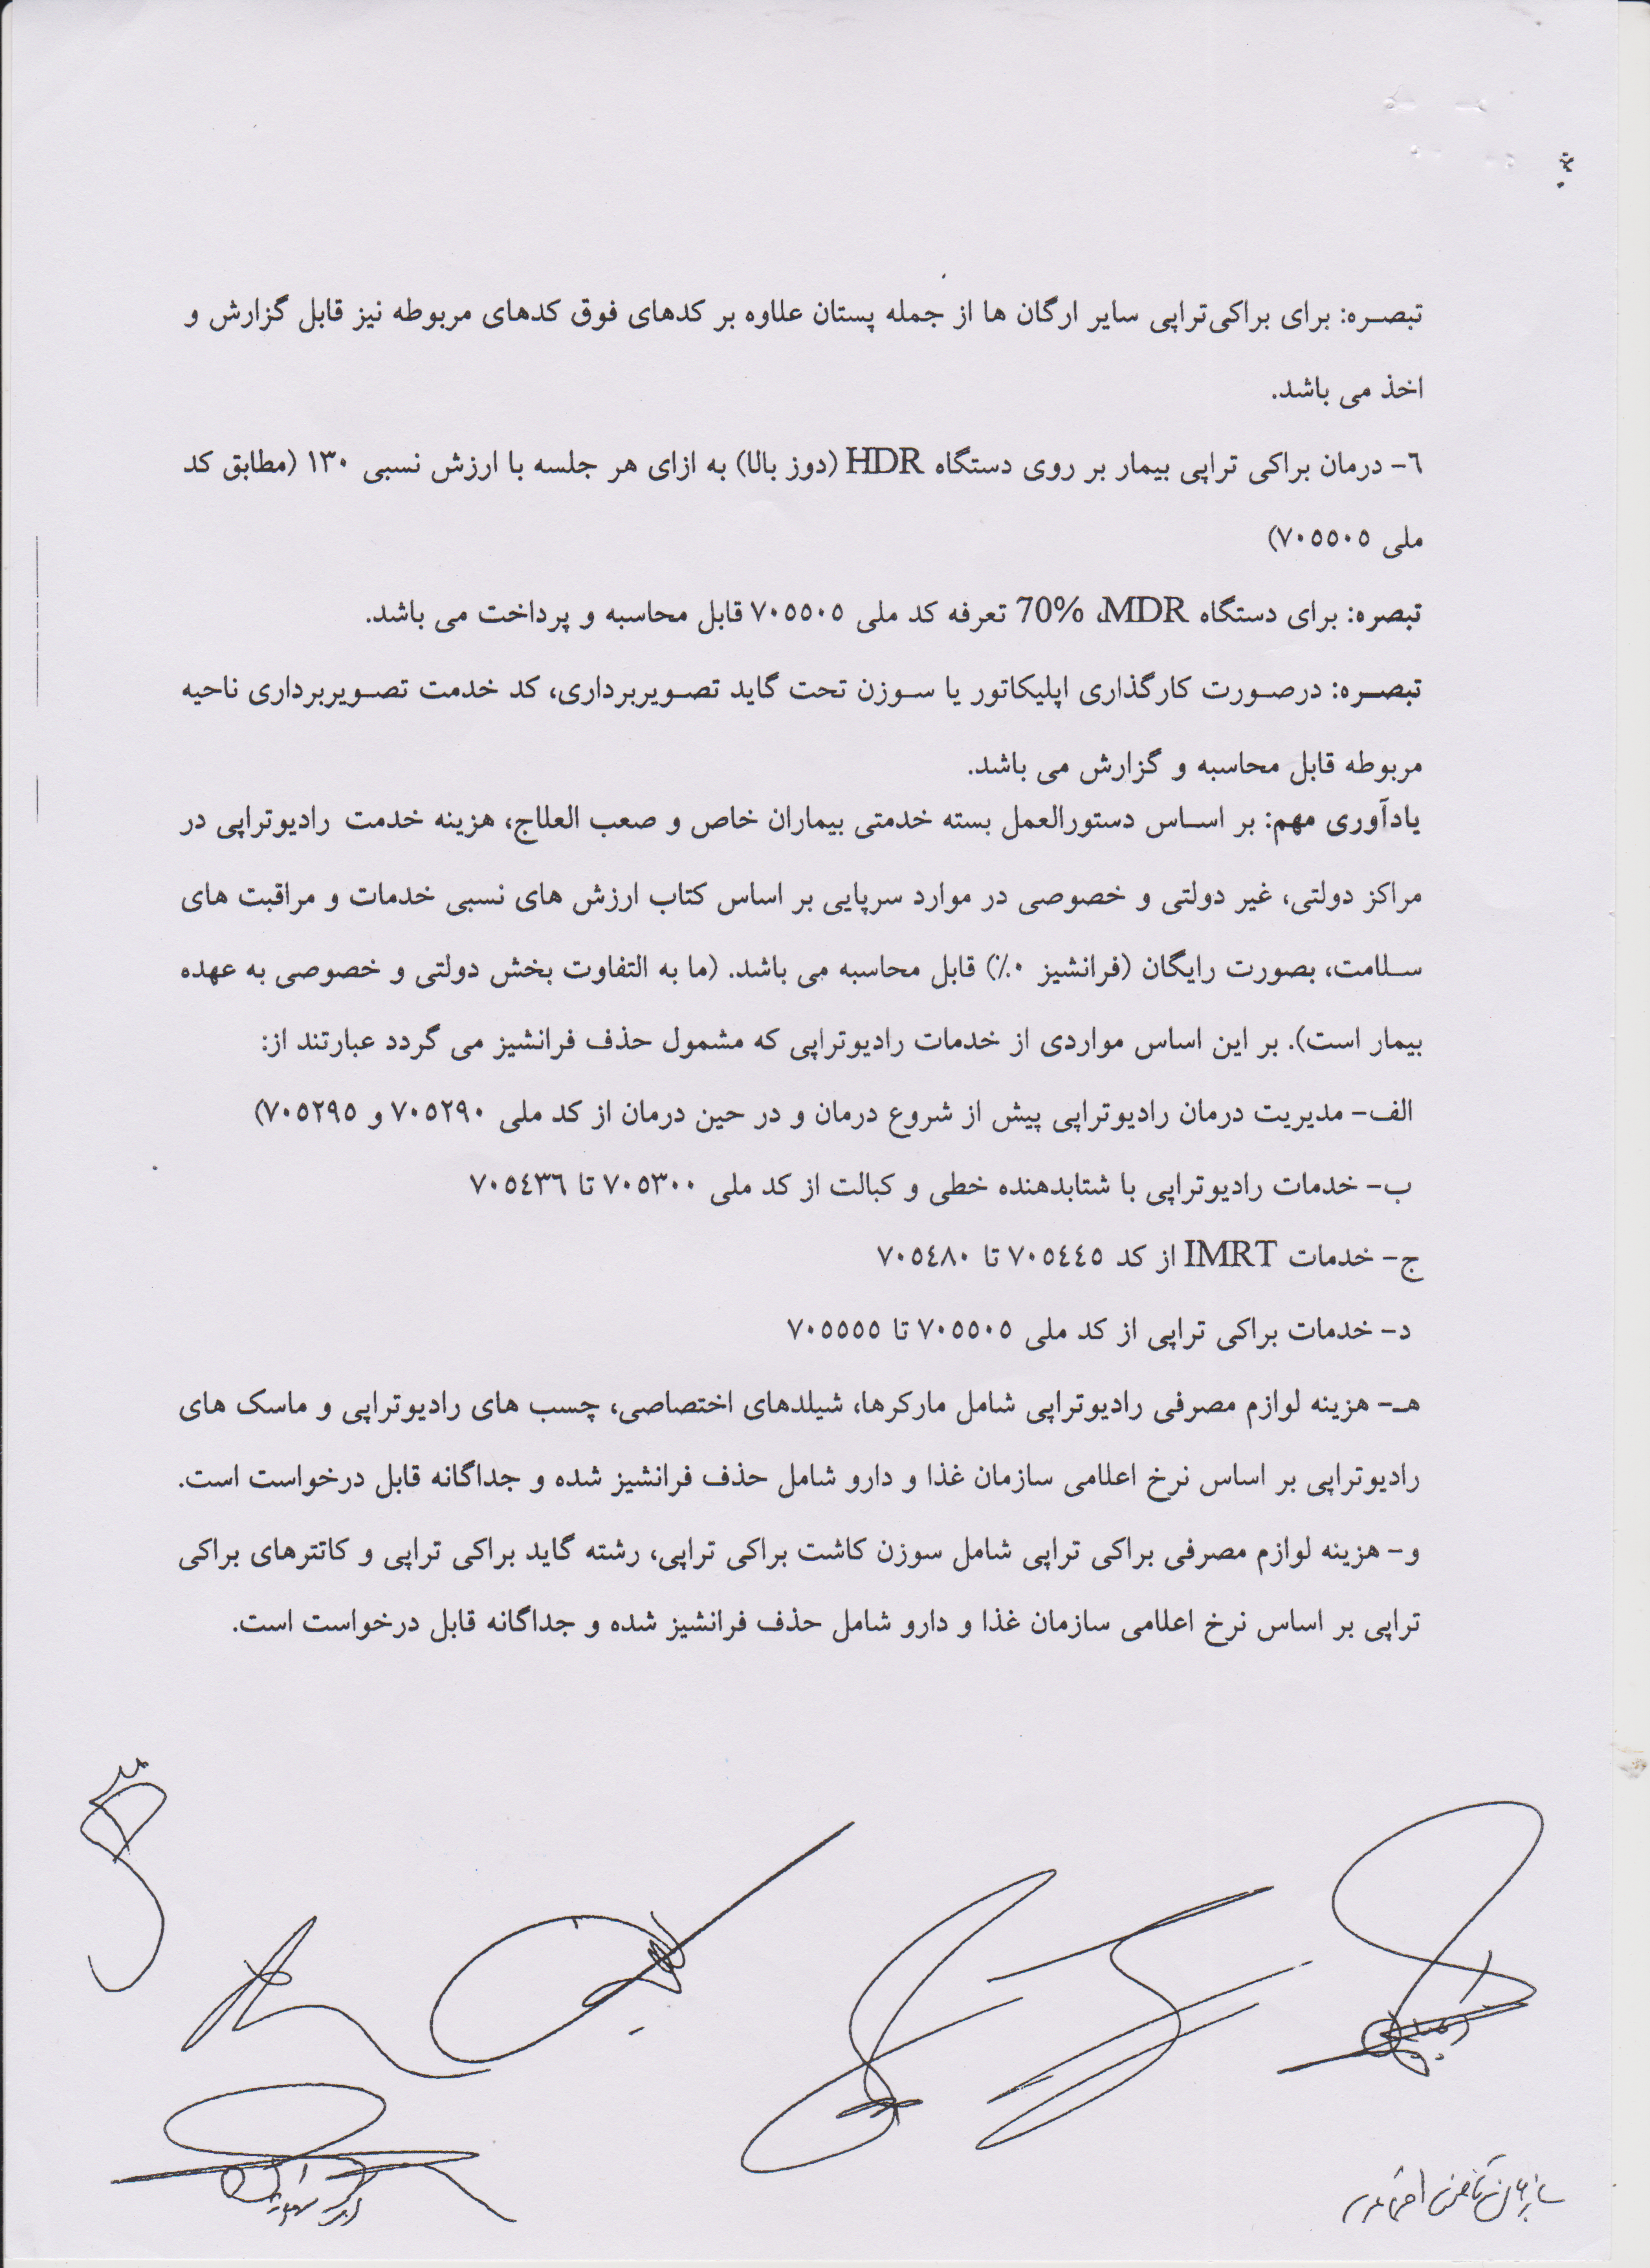 تبصره: برای براکی‌تراپی سایر ارگان ها از جمله پستان علاوه بر کدهای فوق کدهای مربوطه نیز قابل گزارش و
اخذ می باشد.
٦- درمان براکی تراپی بیمار بر روی دستگاه HDR (دوز بالا) به ازای هر جلسه با ارزش نسبی ١٣٠ (مطابق کد
ملی ٧٠٥٥٠٥)
تبصره: برای دستگاه MDR، 70% تعرفه کد ملی ٧٠٥٥٠٥ قابل محاسبه و پرداخت می باشد.
تبصره: درصورت کارگذاری اپلیکاتور یا سوزن تحت گاید تصویربرداری، کد خدمت تصویربرداری ناحیه
مربوطه قابل محاسبه و گزارش می باشد.
یادآوری مهم: بر اساس دستورالعمل بسته خدمتی بیماران خاص و صعب العلاج، هزینه خدمت رادیوتراپی در
مراکز دولتی، غیر دولتی و خصوصی در موارد سرپایی بر اساس کتاب ارزش های نسبی خدمات و مراقبت های
سلامت، بصورت رایگان (فرانشیز ٠٪) قابل محاسبه می باشد. (ما به التفاوت بخش دولتی و خصوصی به عهده
بیمار است). بر این اساس مواردی از خدمات رادیوتراپی که مشمول حذف فرانشیز می گردد عبارتند از:
الف- مدیریت درمان رادیوتراپی پیش از شروع درمان و در حین درمان از کد ملی ٧٠٥٢٩٠ و ٧٠٥٢٩٥)
ب- خدمات رادیوتراپی با شتابدهنده خطی و کبالت از کد ملی ٧٠٥٣٠٠ تا ٧٠٥٤٣٦
ج- خدمات IMRT از کد ٧٠٥٤٤٥ تا ٧٠٥٤٨٠
د- خدمات براکی تراپی از کد ملی ٧٠٥٥٠٥ تا ٧٠٥٥٥٥
هـ- هزینه لوازم مصرفی رادیوتراپی شامل مارکرها، شیلدهای اختصاصی، چسب های رادیوتراپی و ماسک های
رادیوتراپی بر اساس نرخ اعلامی سازمان غذا و دارو شامل حذف فرانشیز شده و جداگانه قابل درخواست است.
و- هزینه لوازم مصرفی براکی تراپی شامل سوزن کاشت براکی تراپی، رشته گاید براکی تراپی و کاتترهای براکی
تراپی بر اساس نرخ اعلامی سازمان غذا و دارو شامل حذف فرانشیز شده و جداگانه قابل درخواست است.
سازمان تامین اجتماعی